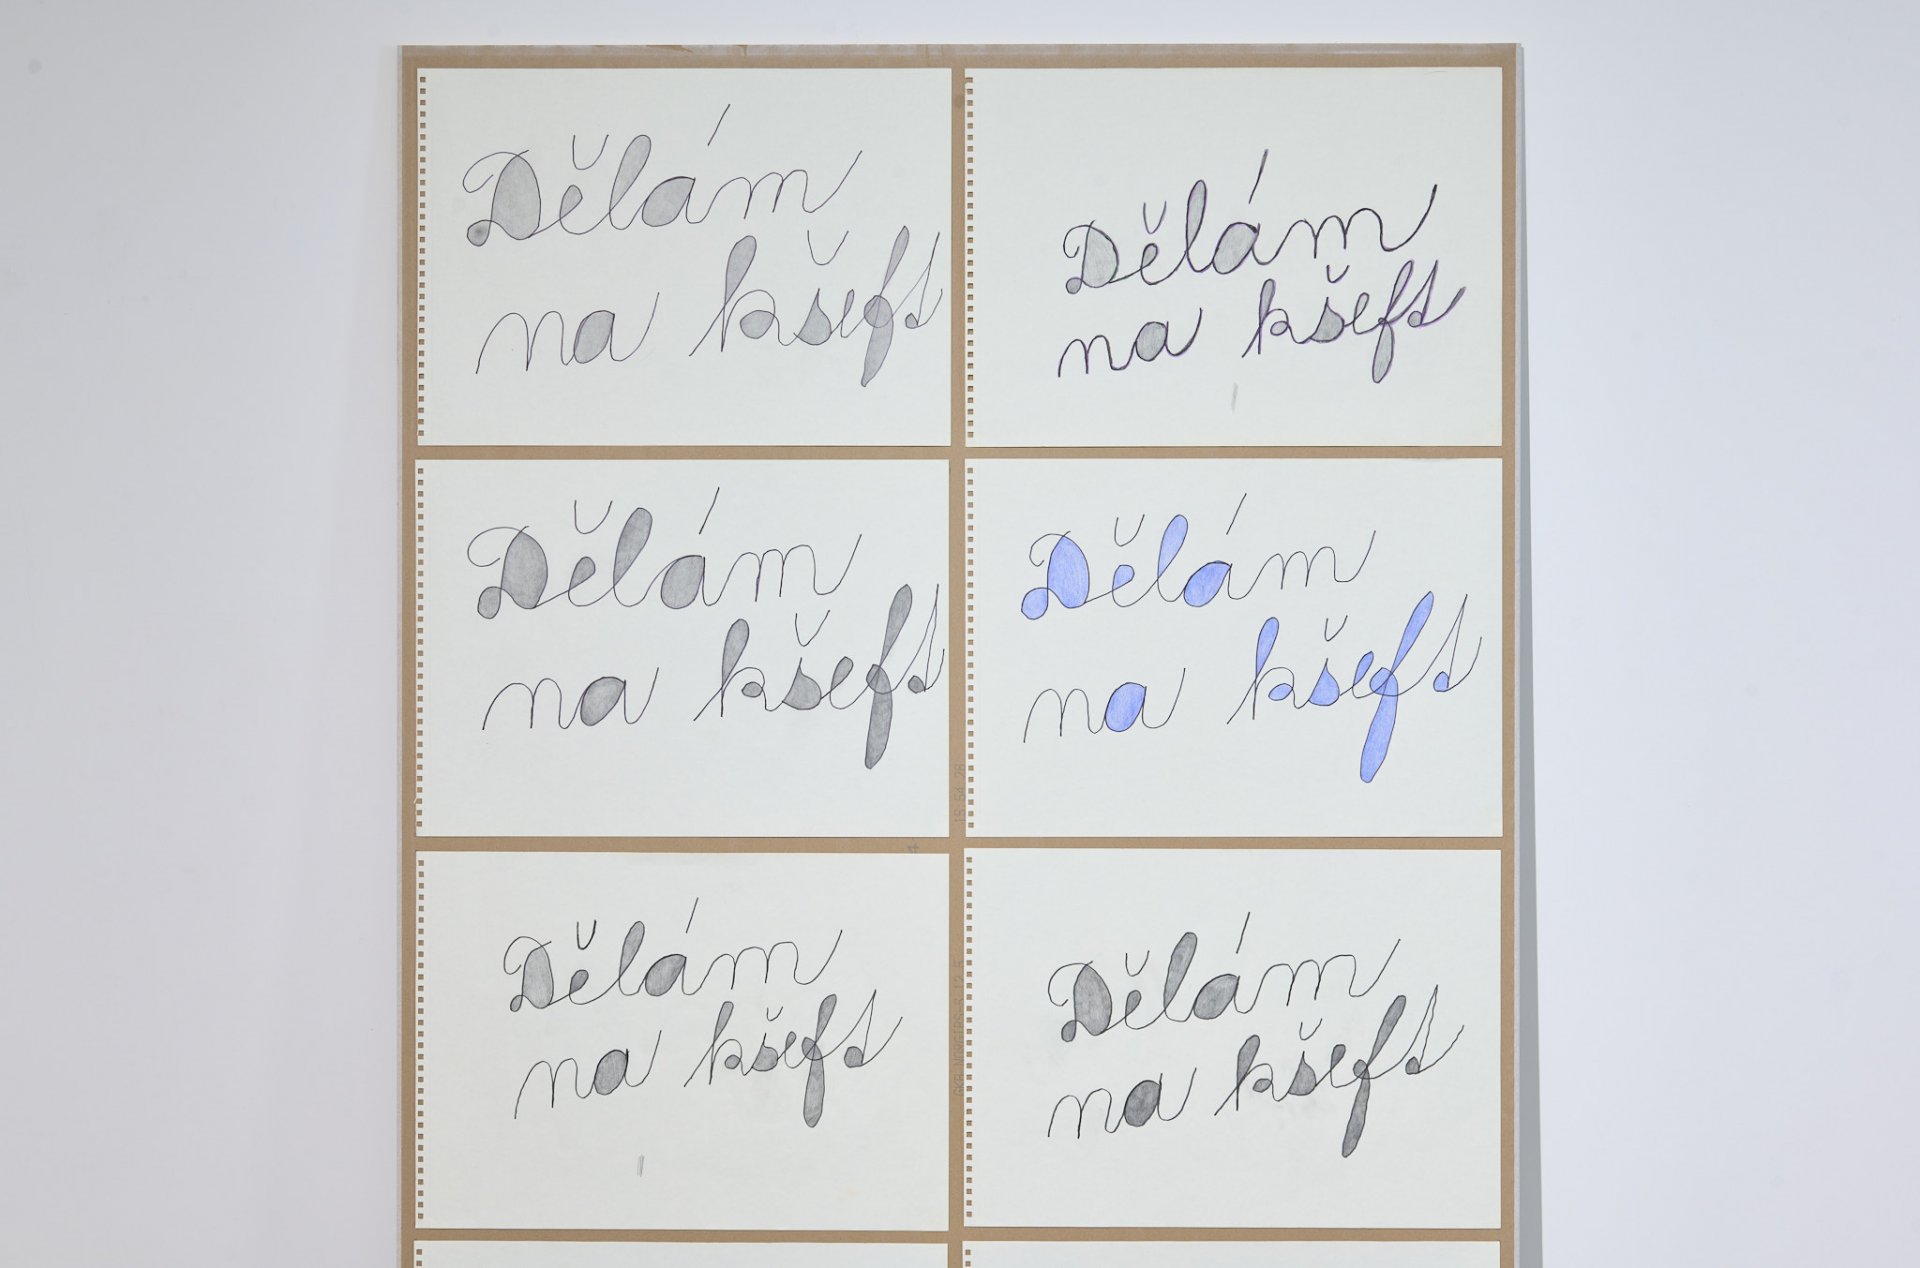 Dělám
na kšeft
Dělám
na kšeft
Dělám
na kšeft
Dělám
na kšeft
Dělám
na kšeft
Dělám
na kšeft